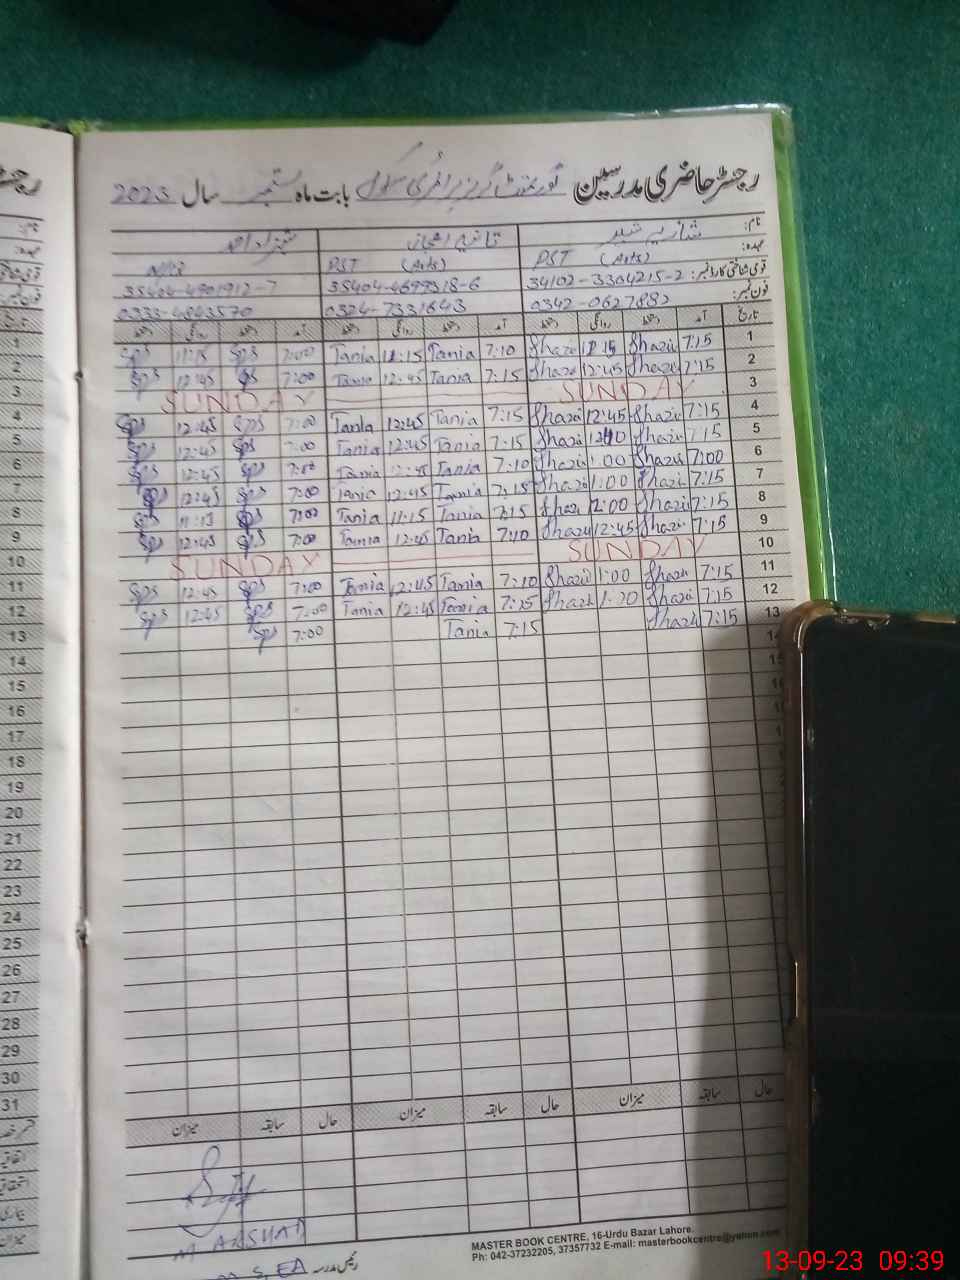 رجسٹر حاضری مدرسین گورنمنٹ گرلز پرائمری سکول بابت ماہ ستمبر سال 2023
نام: شازیہ تانیہ اعجاز شہزاد احمد
عہدہ: PST (Arts) PST (Arts)
قومی شناختی کارڈ نمبر: 34102-3304215-2 35404-4699318-6 35404-4901912-7
فون نمبر: 0342-0627882 0324-7331643 0333-4843570
تاریخ آمد دستخط روانگی دستخط آمد دستخط روانگی دستخط آمد دستخط روانگی دستخط
1 7:15 Shazia 11:15 Shazia 7:10 Tania 11:15 Tania 7:00 11:15
2 7:15 Shazia 12:45 Shazia 7:15 Tania 12:45 Tania 7:00 12:45
3 SUNDAY SUNDAY
4 7:15 Shazia 12:45 Shazia 7:15 Tania 12:45 Tania 7:00 12:45
5 7:15 Shazia Shazia 7:15 Tania 12:45 Tania 7:00 12:45
6 7:00 Shazia 1:00 Shazia 7:10 Tania 12:45 Tania 7:00 12:45
7 7:15 Shazia 1:00 Shazia 7:15 Tania 12:45 Tania 7:00 12:45
8 7:15 Shazia 12:00 Shazia 7:15 Tania 11:15 Tania 7:00 11:15
9 7:15 Shazia 12:45 Shazia 7:10 Tania 12:45 Tania 7:00 12:45
10 SUNDAY SUNDAY
11 7:15 Shazia 1:00 Shazia 7:10 Tania 12:45 Tania 7:00 12:45
12 7:15 Shazia Shazia 7:15 Tania 12:45 Tania 7:00 12:45
13 7:15 Shazia 7:15 Tania 7:00
14
15
16
17
18
19
20
21
22
23
24
25
26
27
28
29
30
31
حال سابقہ میزان حال سابقہ میزان حال سابقہ میزان
M ARSHAD
رئیس مدرسہ
MASTER BOOK CENTRE, 16-Urdu Bazar Lahore.
Ph: 042-37232205, 37357732 E-mail: masterbookcentre@yahoo.com
13-09-23 09:39